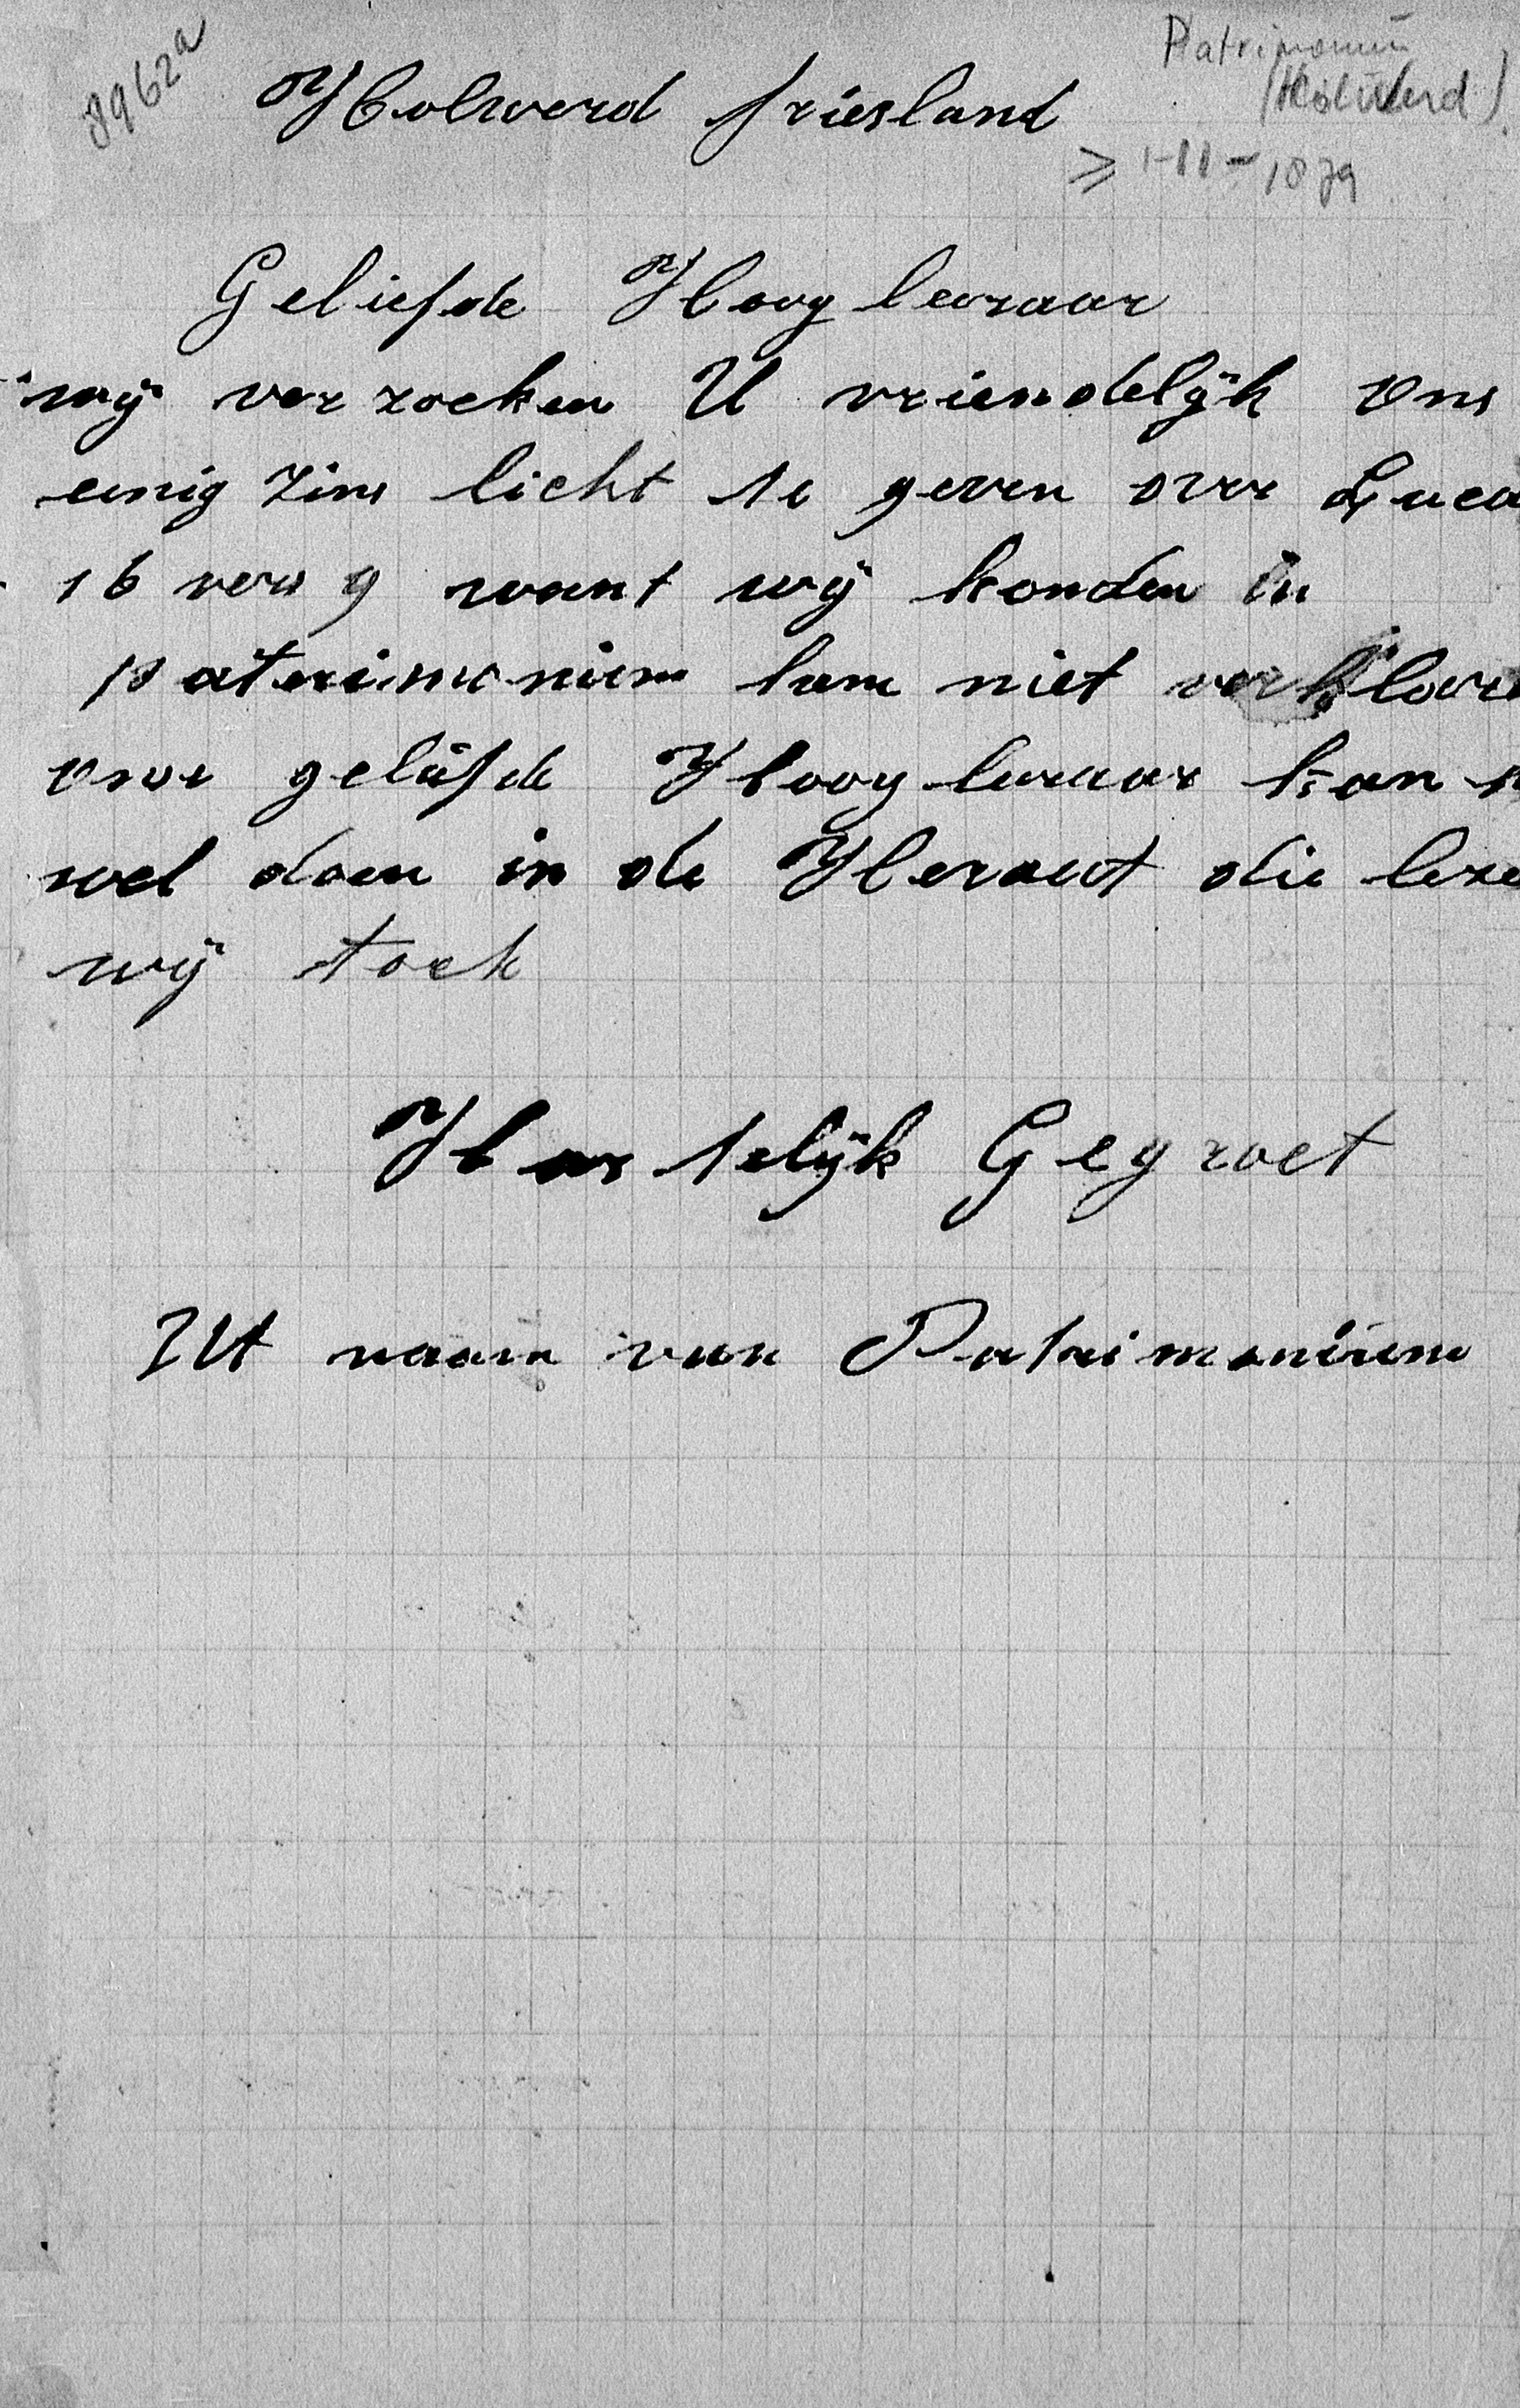 8962a
Patrimonium
(Holwerd)
≥ 1-11-1879
Holwerd friesland
Geliefde Hoog leeraar
wij ver zoeken U vriendelijk Ons
eenig zins licht te geven over Luca
16 vers 9 want wij konden in
patrimonium hem niet verklare
onze geliefde Hoog leeraar kan
wel doen in de Heraut die leze
wij toch
Har telijk Gegroet
Uit naam van Patrimonium